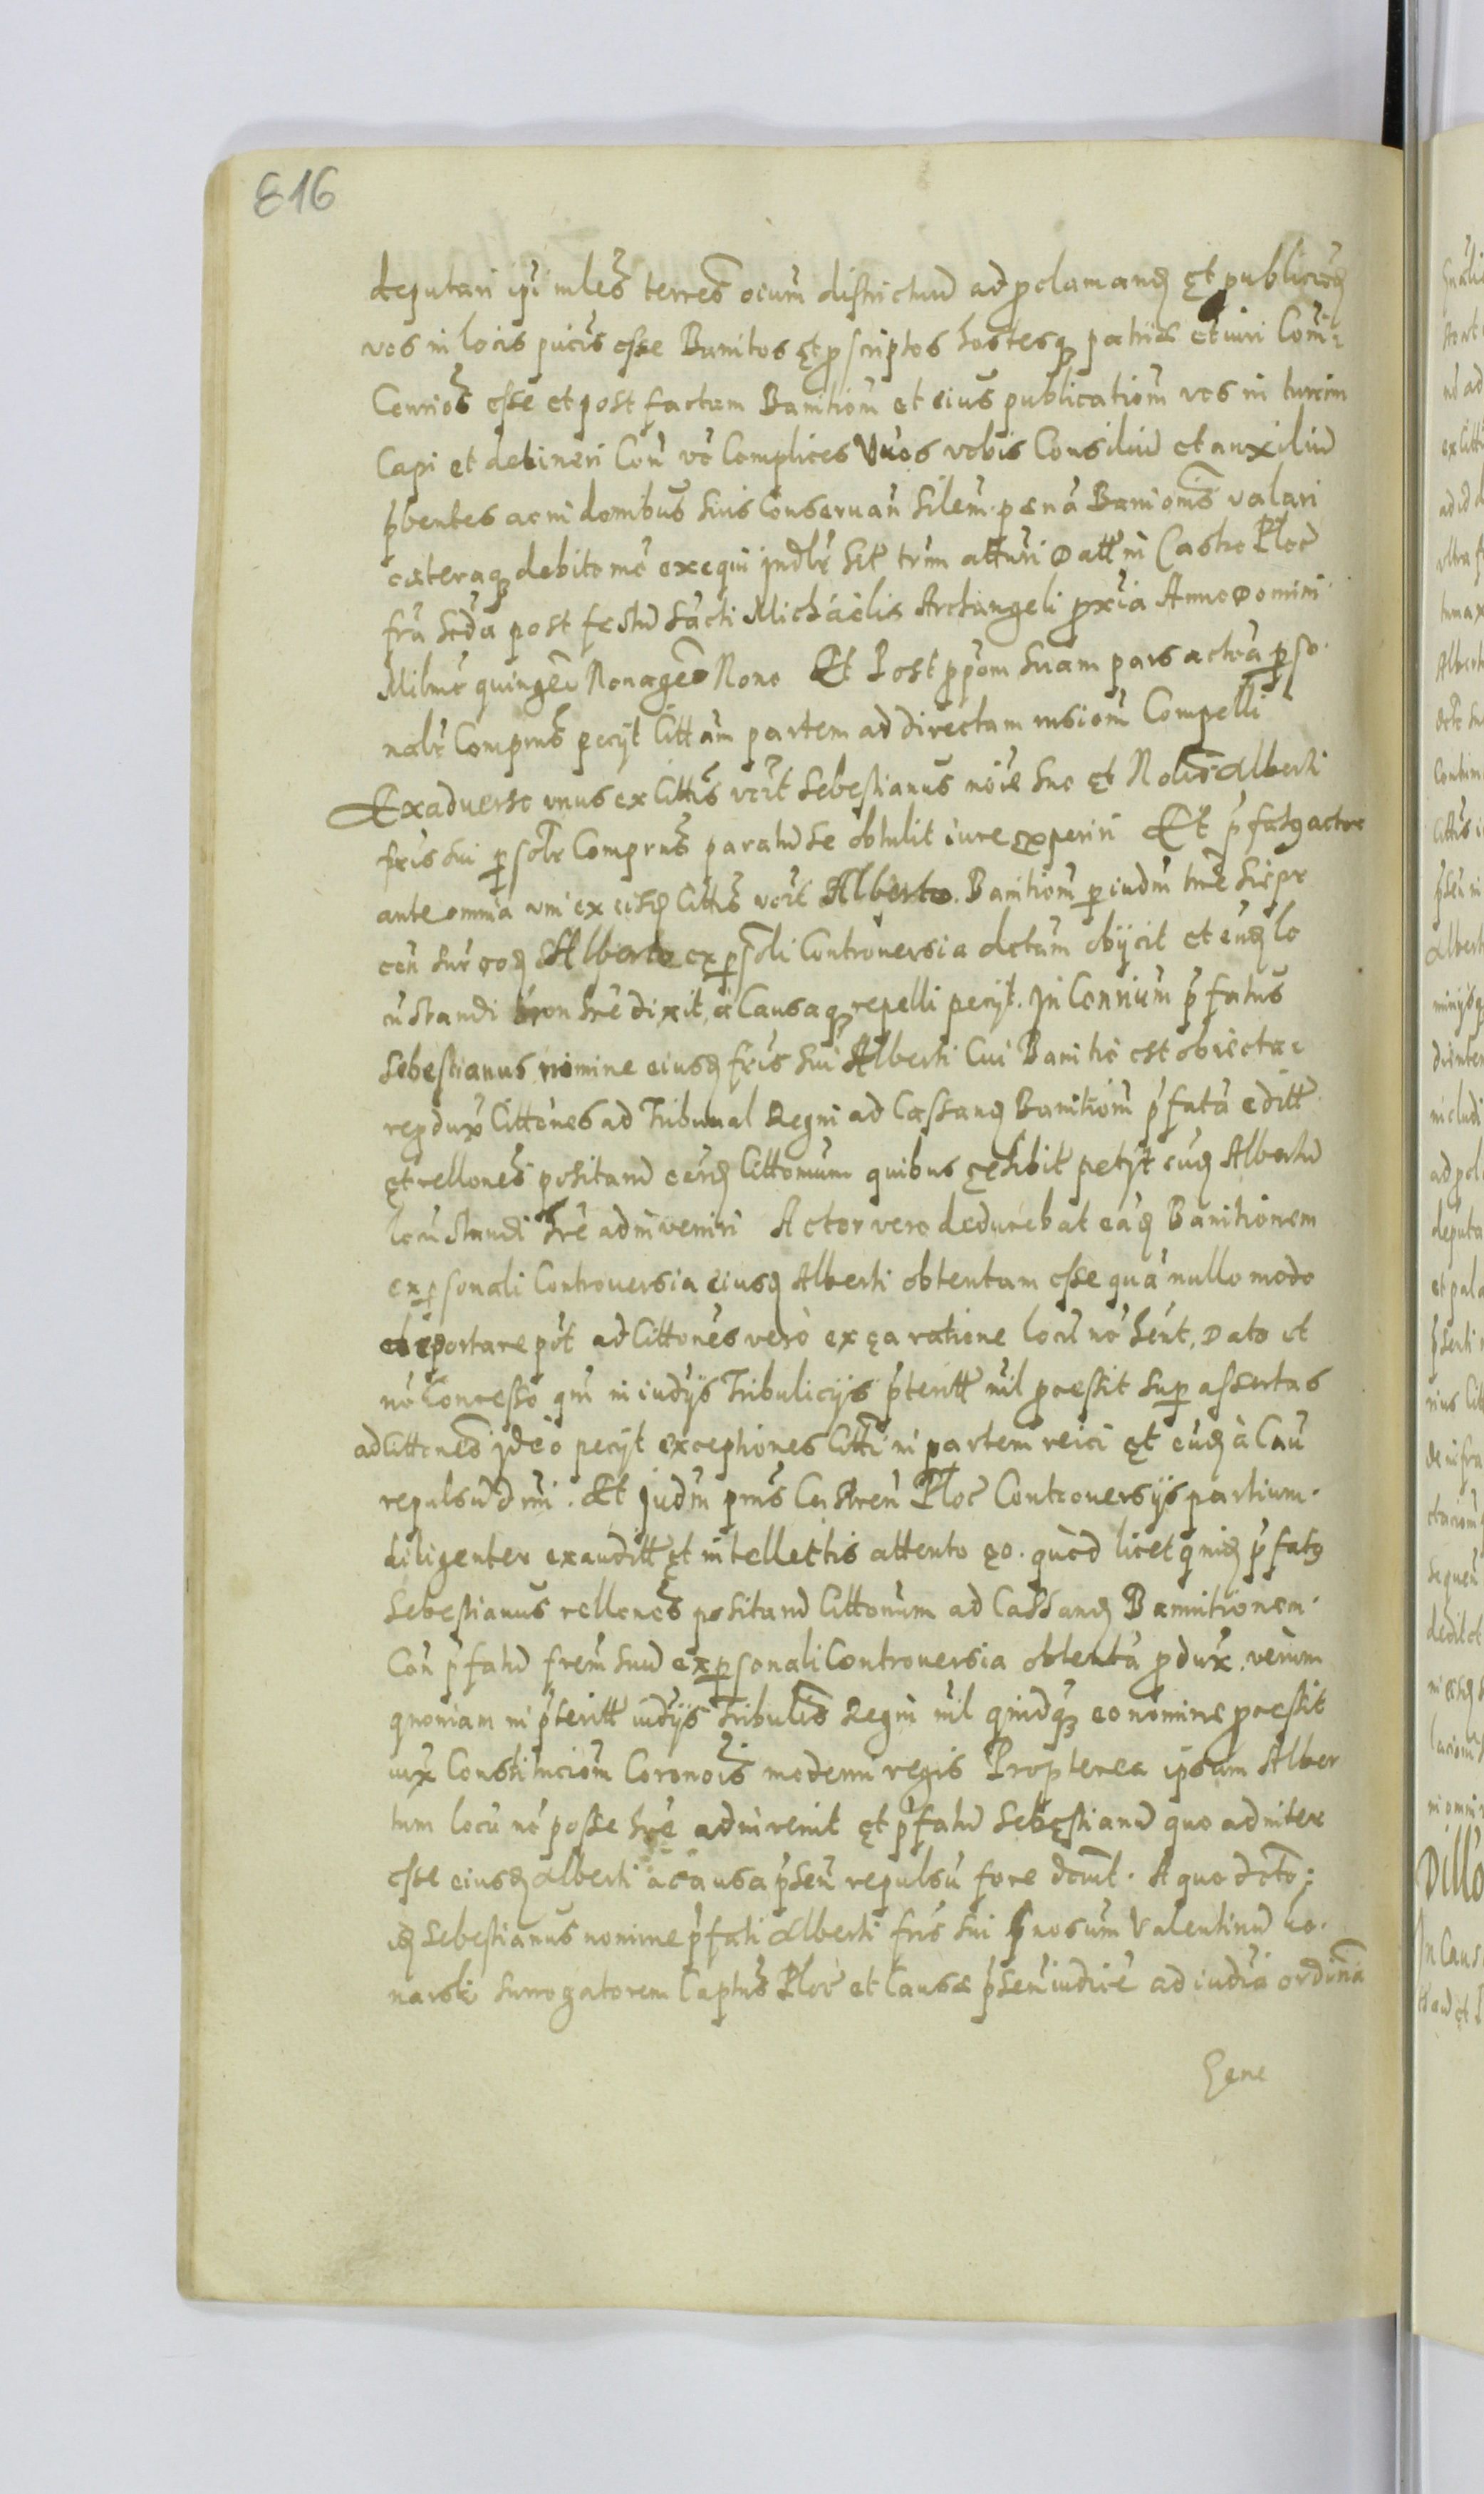 816
deputari ipi mles terres oium districtuu ad proclamand et publicand
vos in locis pucis esse Banitos et proscriptos hostesq patriæ et iuri Com-
Conrios esse et post factam Banitiom et eius publicatiom vos in turrim
Capi et detineri Con vo Complices Vuos vobis Consiliu et auxiliu
pbentes ac in domibus suis Conseruan silem pæna Banionis valari
cæteraq debito mo exequi jndlr sit trm atturi Datt in Castro Ploc
fra scda post festu sacti Michaelis Archangeli proxia Anno Domini
Milmo quingeo Nonageo Nono Et Post ppom suam pars actra perso
nalr Comprns pecyt Cittam partem ad directam rnsiom Compelli
Ex aduerso vnus ex Cittis vcit Sebestianus noie suo et Nolis Alberti
fris sui persolr Comprns paratu se obtulit iure experiri Et pfatg actor
ante omnia vni ex eisd Cittis vcit Alberto Banitiom per iudm tme
con sur eod Alberto ex psoli Controuersia dctam obijcit et eud lo
cu standi non hre dixit, à Causaq repelli pecyt. Jn Conrium pfatus
Sebestianus nomine eiusd fris sui Alberti Cui Banitio est obiecta
repdux Cittones ad Tribunal Regni ad Cassand Banitiom pfata editt
et rellones positaru earud Cittonum quibus exhibit petyt eud Albertu
locu standi hre adinveniri Actor vero deducebat eand Banitionem
ex personali Controuersia eiusd Alberti obtentam esse qua nullo modo
portare pot ad Cittones vero ex ea ratione locu no hent, Dato et
no Concesso qm in iudijs Tribulicijs pteritt nil prcestit super assertas
ad Cittones jdeo pecyt exceptiones Citti in partem reici et eud à Cau
repulsu drni. Et Judm prns Castren Ploc Controuersijs partium
diligenter exauditt et intellectis attento eo quod licet quid pfatg
Sebestianus rellones positaru Cittonum ad Cassand Bannitionem
Con pfatu frem suu ex personali Controuersia obtenta produx. verum
quoniam in pteritt iudijs Tribulis Regni nil quidq eo nomine prcestit
iux Constituciom Coronois moderni regis Propterea ipsum Alber
tum locu no posse hre adinvenit et pfatu Sebestianu quo ad inter
esse eiusd Alberti à causa psen repulsu fore dcnit. A quo dcto
id Sebestianus nomine pfati Alberti fris sui Gnosum Valentinu Ko
narski Surrogatorem Captus Ploc et Causæ psen iudice ad iudia ordinà
Gene